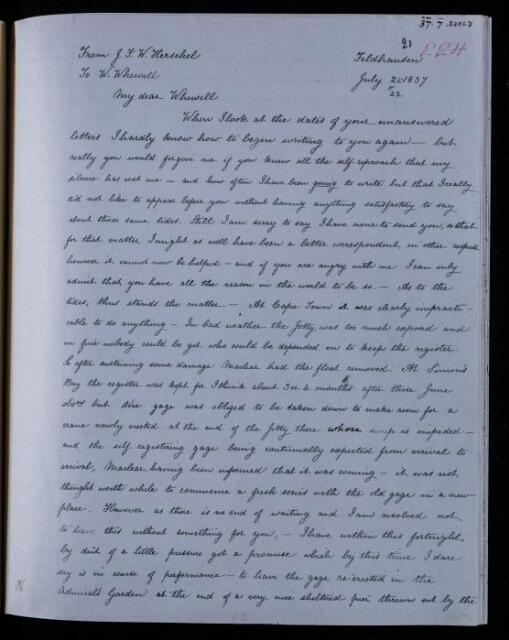 37. 7.
21
From J. F. W. Herschel
Feldhausen
To W. Whewell
July 22 1837
23.
My dear Whewell
When I look at the dates of your unanswered
letters I hardly know how to begin writing to you again — but
really you would forgive me if you knew all the self reproach that my
silence has cost me — and how often I have been going to write but that I really
did not like to appear before you without having anything satisfactory to say
about those same tides. Still I am sorry to say I have none to send you, so that
for that matter I might as well have been a better correspondent in other respects
however it cannot now be helped — and if you are angry with me I can only
admit that you have all the reason in the world to be so. — As to the
tides, thus stands the matter — At Cape Town it was clearly impracti-
cable to do anything — In bad weather the Jetty was too much exposed and
in fine nobody could be got who could be depended on to keep the register.
So after sustaining some damage Maclear had the float removed. At Simon's
Bay the register was kept for I think about 3 or 4 months after those June
obsns but the gage was obliged to be taken down to make room for a
crane newly erected at the end of the Jetty there whose is impeded —
and the self registering gage being continually expected from arrival to
arrival, Maclear having been informed that it was coming — it was not
thought worth while to commence a fresh series with the old gage in a new
place. However as there is no end of waiting and I am resolved not
to leave this without something for you, — I have within this fortnight,
by dint of a little pressure got a promise which by this time I dare
say is in course of performance — to have the gage re-erected in the
Admiral's Garden at the end of a very nice sheltered pier thrown out by the